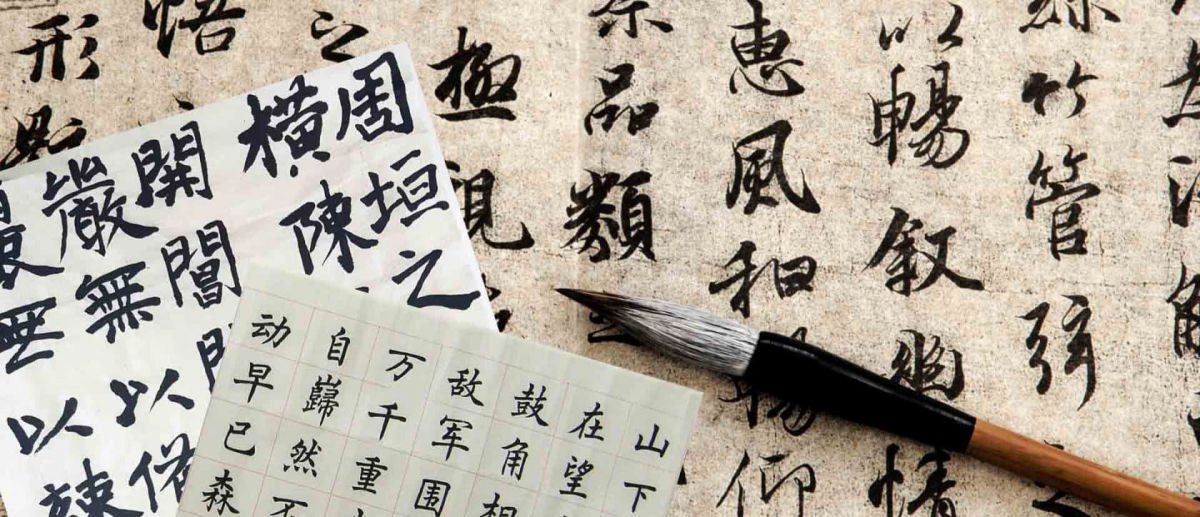 竹管弦
以暢叙幽情
惠風和暢仰
品類
極視
之
悟
形
周垣之
横陳
開閶
嚴無以
無以
山下
在望
鼓角相
敌军围
万千重
自巋然不
动早已森